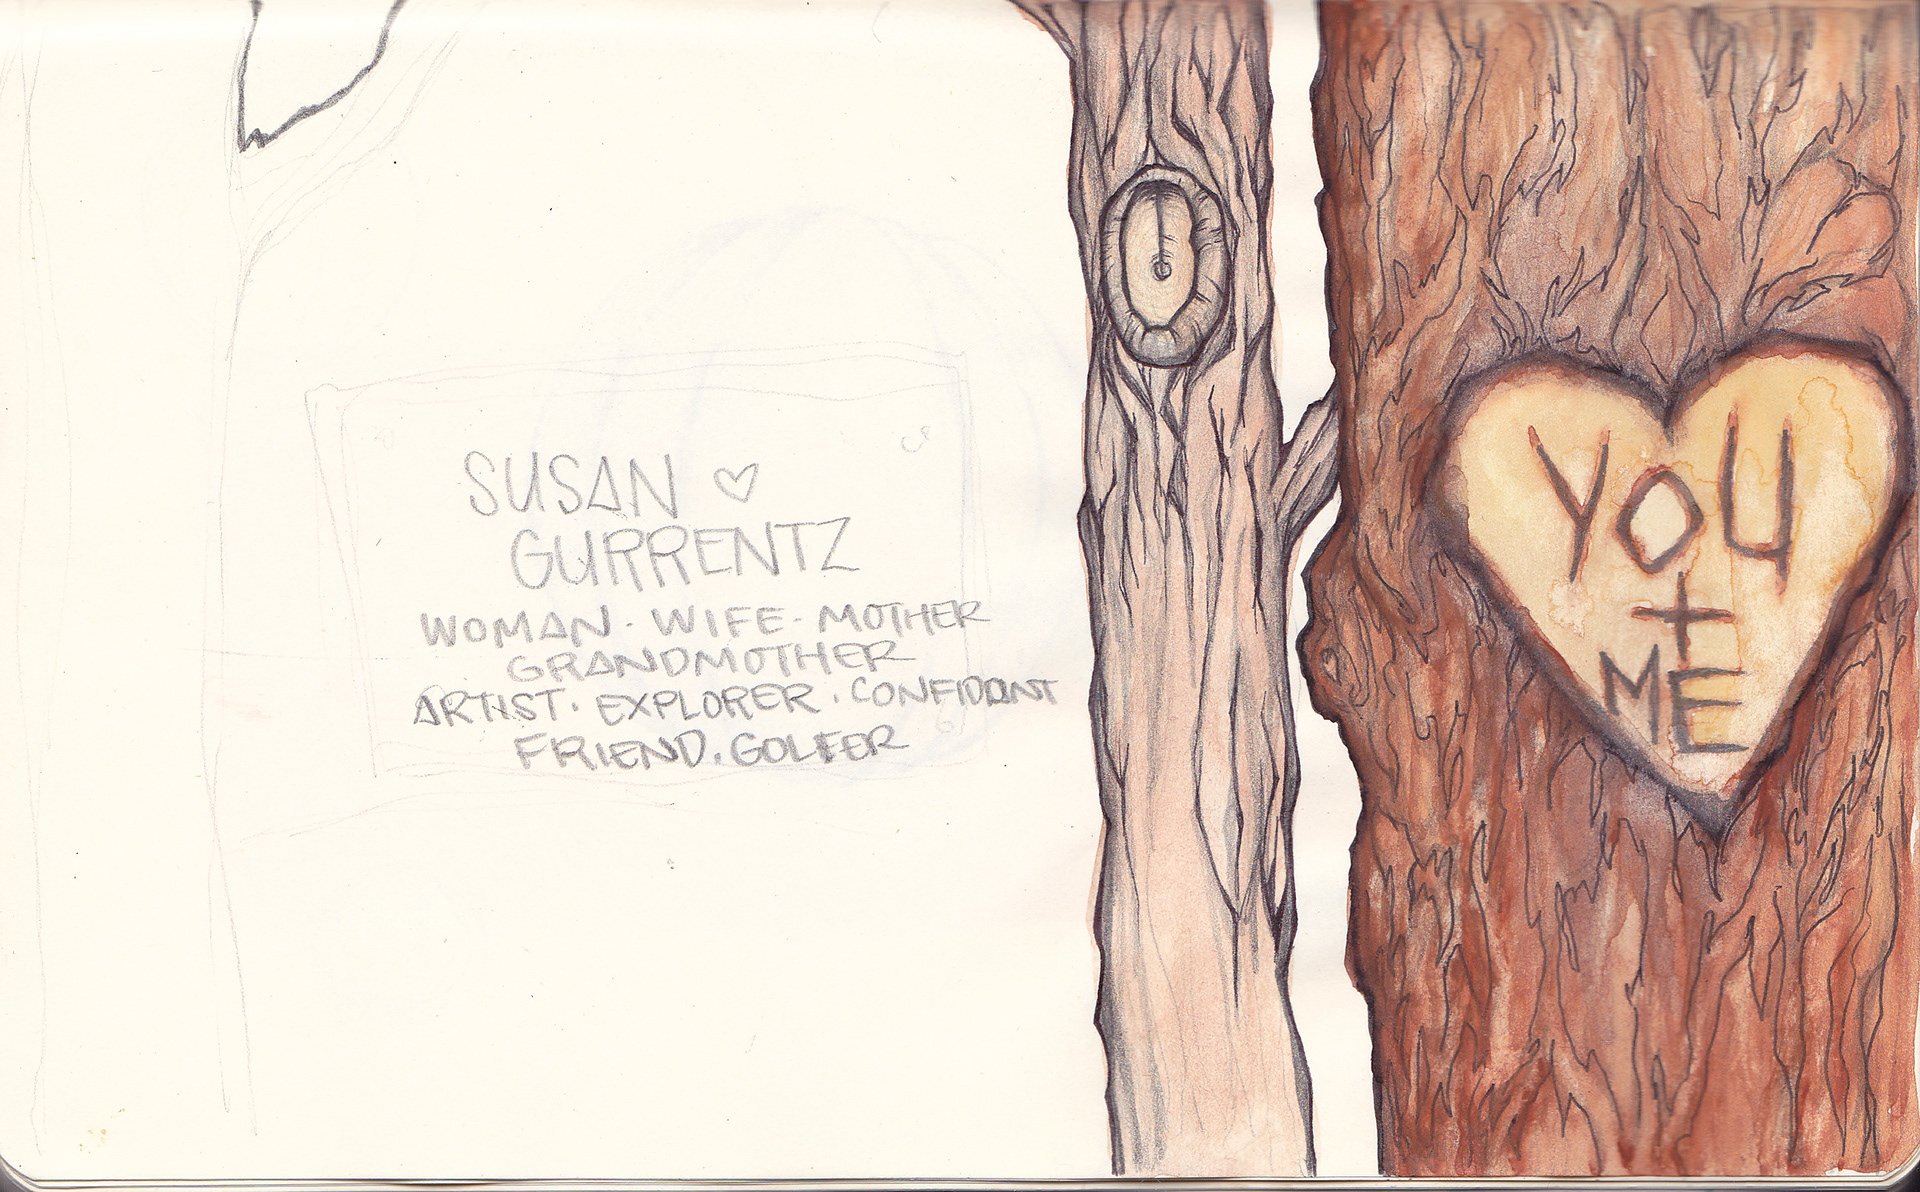 SUSAN ♡
GURRENTZ
WOMAN · WIFE · MOTHER
GRANDMOTHER
ARTIST · EXPLORER · CONFIDANT
FRIEND · GOLFER
YOU
+
ME